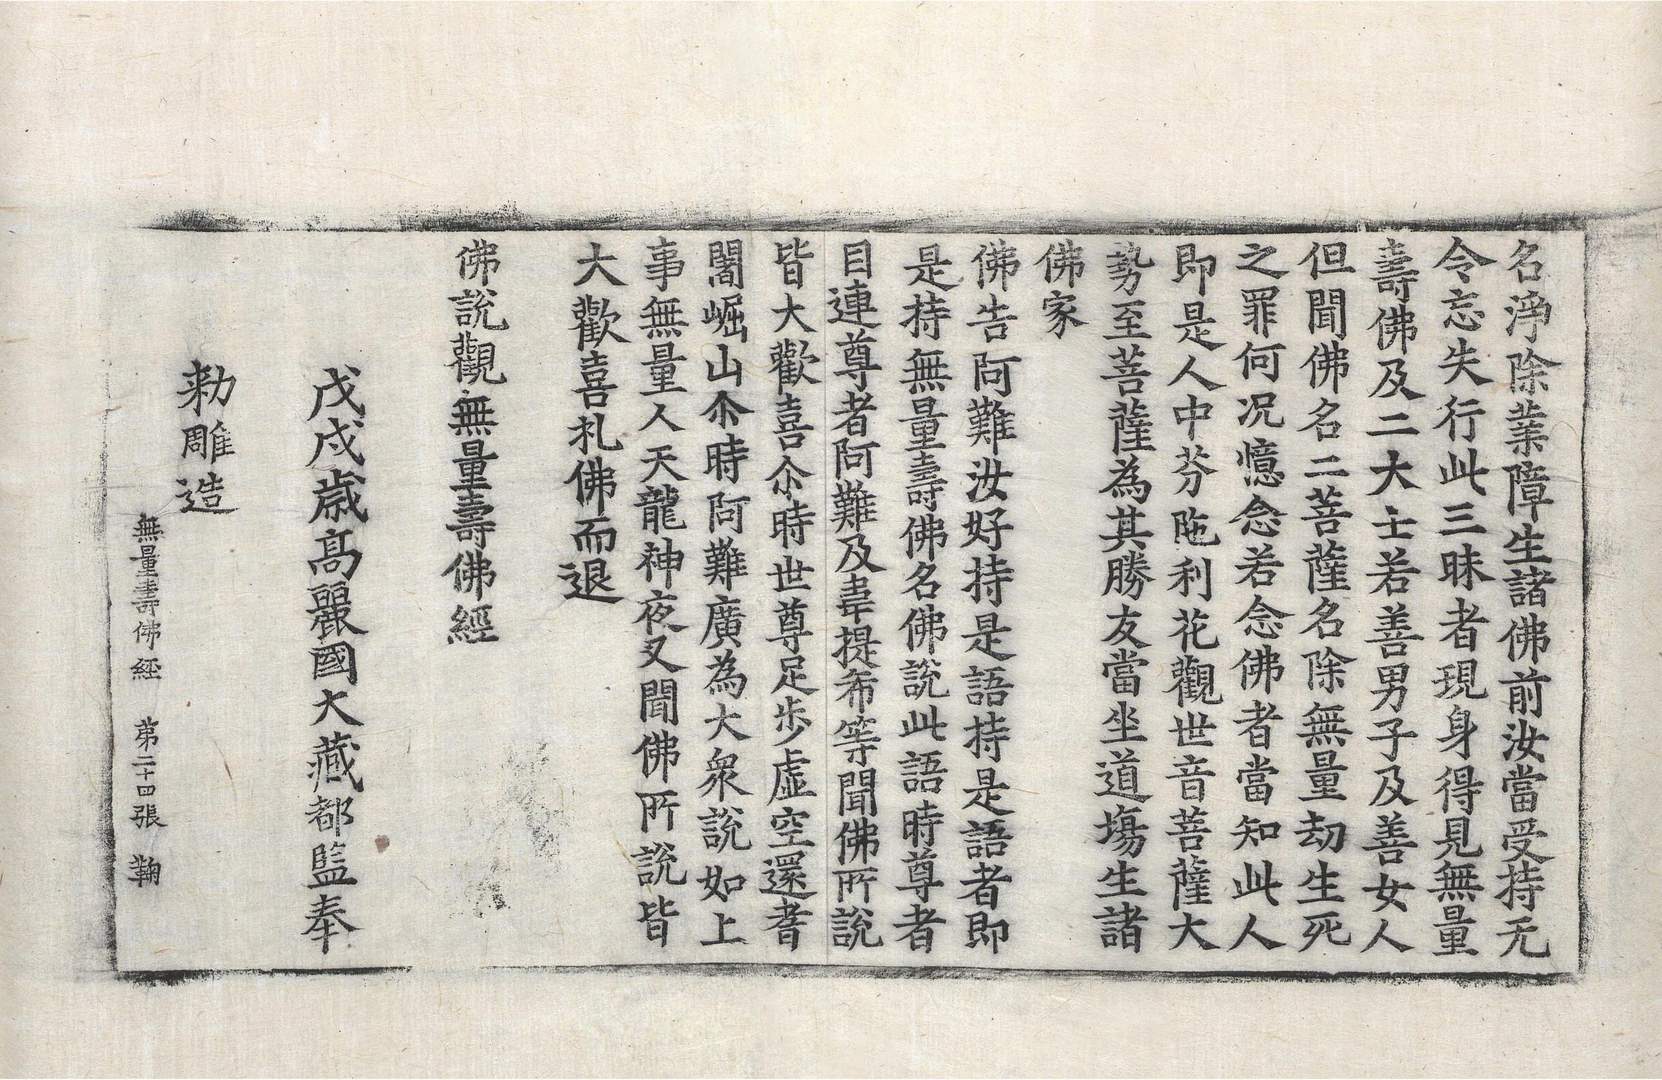 名淨除業障生諸佛前汝當受持无
令忘失行此三昧者現身得見無量
壽佛及二大士若善男子及善女人
但聞佛名二菩薩名除無量劫生死
之罪何况憶念若念佛者當知此人
即是人中芬陁利花觀世音菩薩大
勢至菩薩為其勝友當坐道塲生諸
佛家
佛告阿難汝好持是語持是語者即
是持無量壽佛名佛說此語時尊者
目連尊者阿難及韋提希等聞佛所說
皆大歡喜尒時世尊足步虛空還耆
闍崛山尒時阿難廣為大衆說如上
事無量人天龍神夜叉聞佛所說皆
大歡喜礼佛而退
佛說觀無量壽佛經
戊戌歲高麗國大藏都監奉
勑雕造
無量壽佛經 第二十四張 鞠